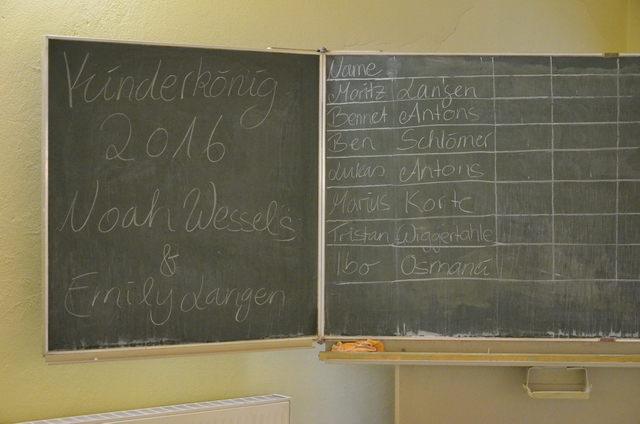 Kinderkönig
2016
Noah Wessels
&
Emily Langen
Name
Moritz Langen
Bennet Antons
Ben Schlömer
Lukas Antons
Marius Korte
Tristan
Ibo Osmani